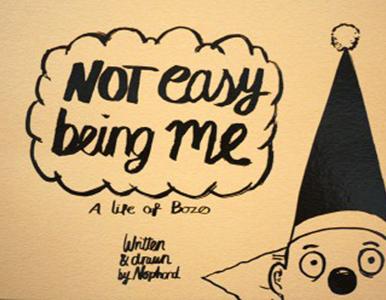 NOT easy
being me
A life of Bozo
Written
& drawn
by Nephord